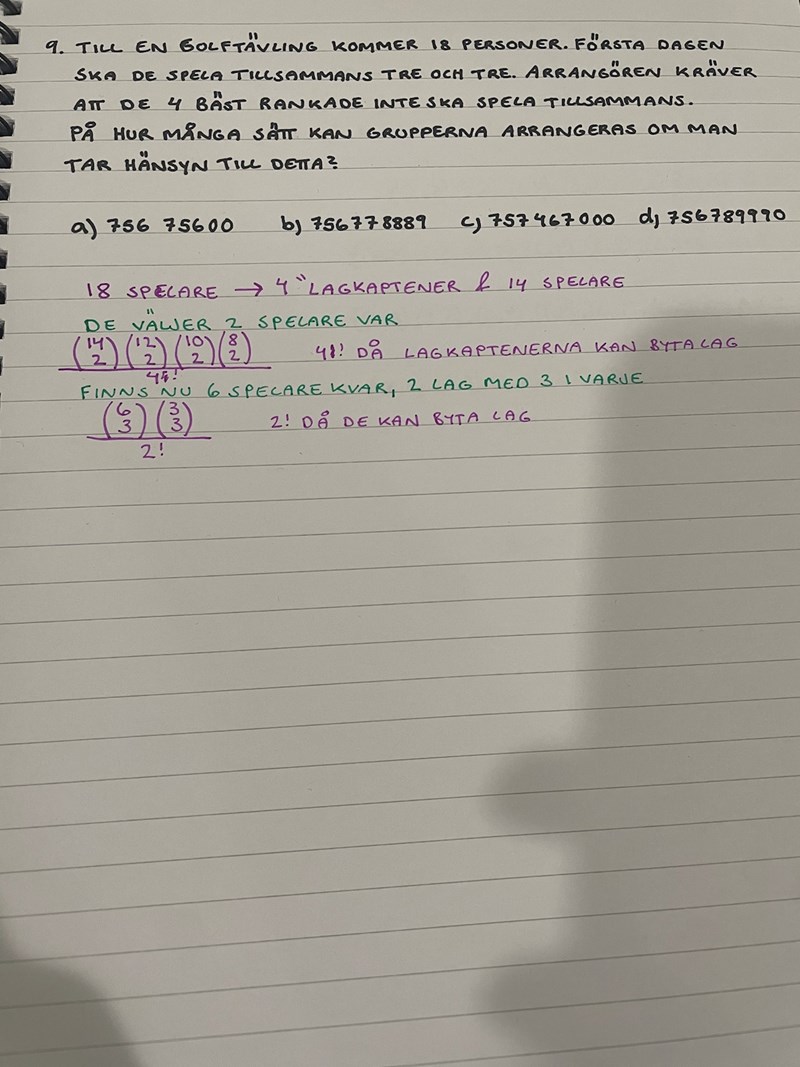 9. TILL EN GOLFTÄVLING KOMMER 18 PERSONER. FÖRSTA DAGEN
SKA DE SPELA TILLSAMMANS TRE OCH TRE. ARRANGÖREN KRÄVER
ATT DE 4 BÄST RANKADE INTE SKA SPELA TILLSAMMANS.
PÅ HUR MÅNGA SÄTT KAN GRUPPERNA ARRANGERAS OM MAN
TAR HÄNSYN TILL DETTA?
a) 756 75600 b) 756778889 c) 757467000 d) 756789990
18 SPELARE → 4 "LAGKAPTENER & 14 SPELARE
DE VÄLJER 2 SPELARE VAR
(14 2) (12 2) (10 2) (8 2) / 4! 4! DÅ LAGKAPTENERNA KAN BYTA LAG
FINNS NU 6 SPELARE KVAR, 2 LAG MED 3 I VARJE
(6 3) (3 3) / 2! 2! DÅ DE KAN BYTA LAG